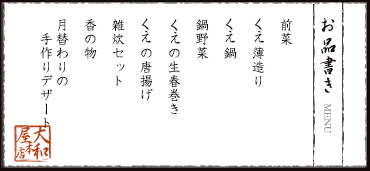 お品書き
MENU
前菜
くえ薄造り
くえ鍋
鍋野菜
くえの生春巻き
くえの唐揚げ
雑炊セット
香の物
月替わりの
手作りデザート
大和屋本店